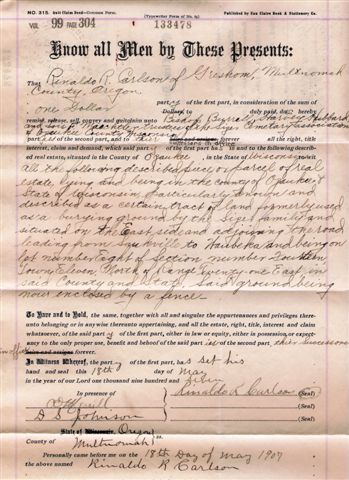 NO. 315 Quit Claim Deed—Common Form.
(Typewriter Form of No. 9)
Published by Eau Claire Book & Stationery Co.
VOL 99 PAGE 304
133478
Know all Men by These Presents:
That Rinaldo R. Carlson of Gresham, Multnomah
County, Oregon,
part y of the first part, in consideration of the sum of
one Dollar
Dollars to paid, do hereby
remise, release, sell, convey and quitclaim unto
Cemetary Association
of Ozaukee County Wisconsin
part ies of the second part, and to their heirs and assigns forever all the right, title
interest, claim and demand, which said part of the first part has in and to the following describ-
ed real estate, situated in the County of Ozaukee, in the State of Wisconsin, to wit
all the following described piece or parcel of real
estate, lying and being in the county of Ozaukee, &
State of Wisconsin, & particularly known and
described as a certain tract of land formerly used
as a burying ground by the Sizer family and
situated on the East side and adjoining the road
leading from to Waubeka and being on
lot number Eight of section number fourteen
Town Eleven North of Range Twenty-one East, in
said County and State, said ground being
now enclosed by a fence.
To Have and to Hold, the same, together with all and singular the appurtenances and privileges there-
unto belonging or in any wise thereunto appertaining, and all the estate, right, title, interest and claim
whatsoever, of the said part y of the first part, either in law or equity, either in possession or expect-
ancy to the only proper use, benefit and behoof of the said part ies of the second part, their successors
in office heirs and assigns forever.
In Witness Whereof, the part y of the first part, has set his
hand and seal this 18th day of May
in the year of our Lord one thousand nine hundred and seven
In presence of
Rinaldo R Carlson (Seal)
(Seal)
D S Johnson
State of Wisconsin, Oregon
County of Multnomah ss.
Personally came before me on the 18th Day of May 1907
the above named Rinaldo R Carlson